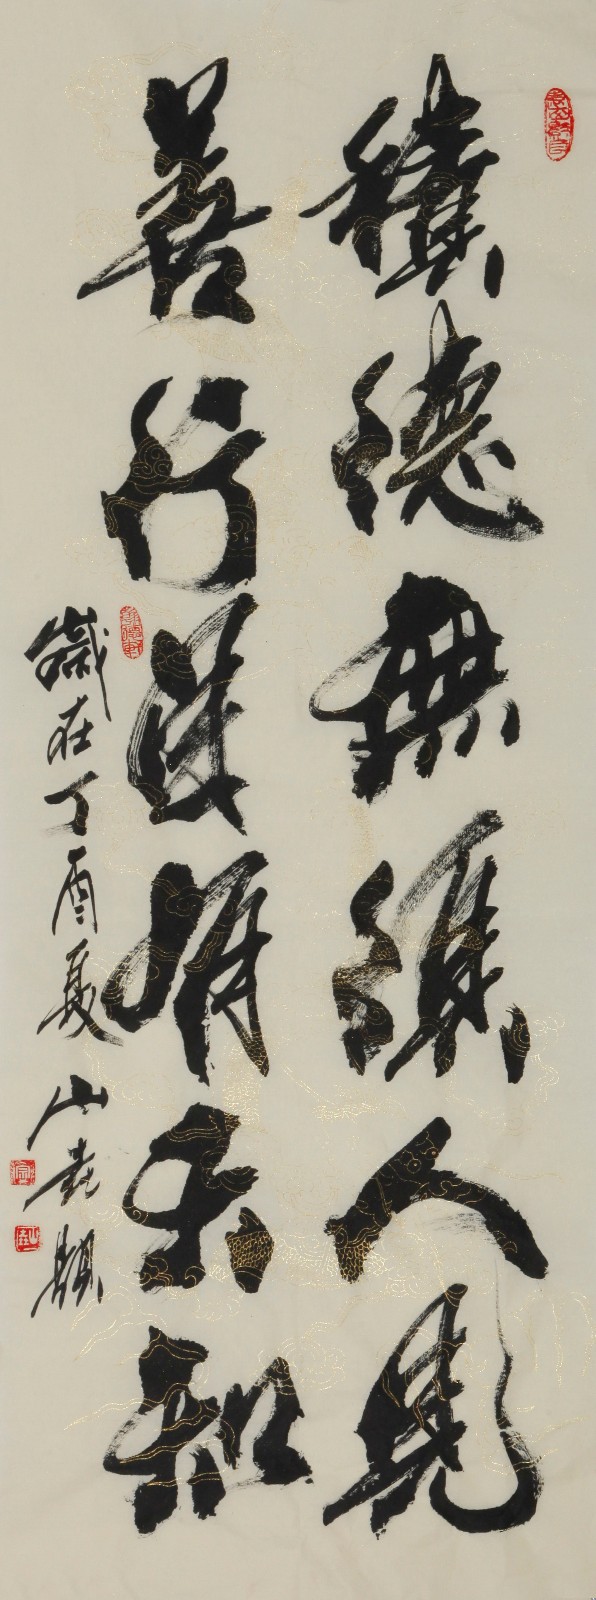 積德無須人見
善行有天知
歲在丁酉夏山題